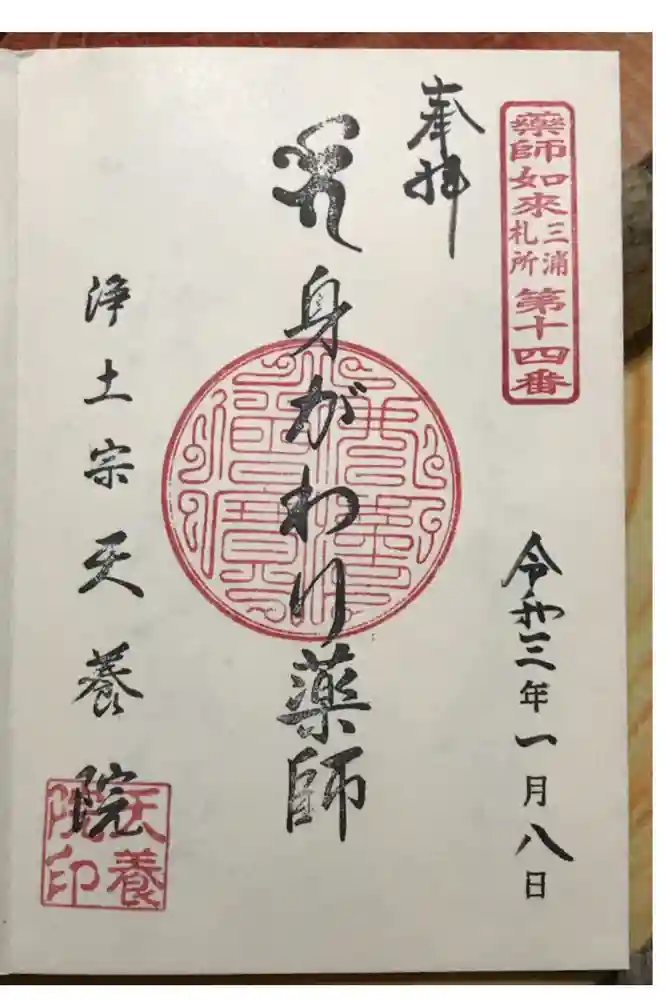 藥師如來
三浦
札所
第十四番
奉拝
令和三年一月八日
身がわり薬師
浄土宗天養院
天養
院印